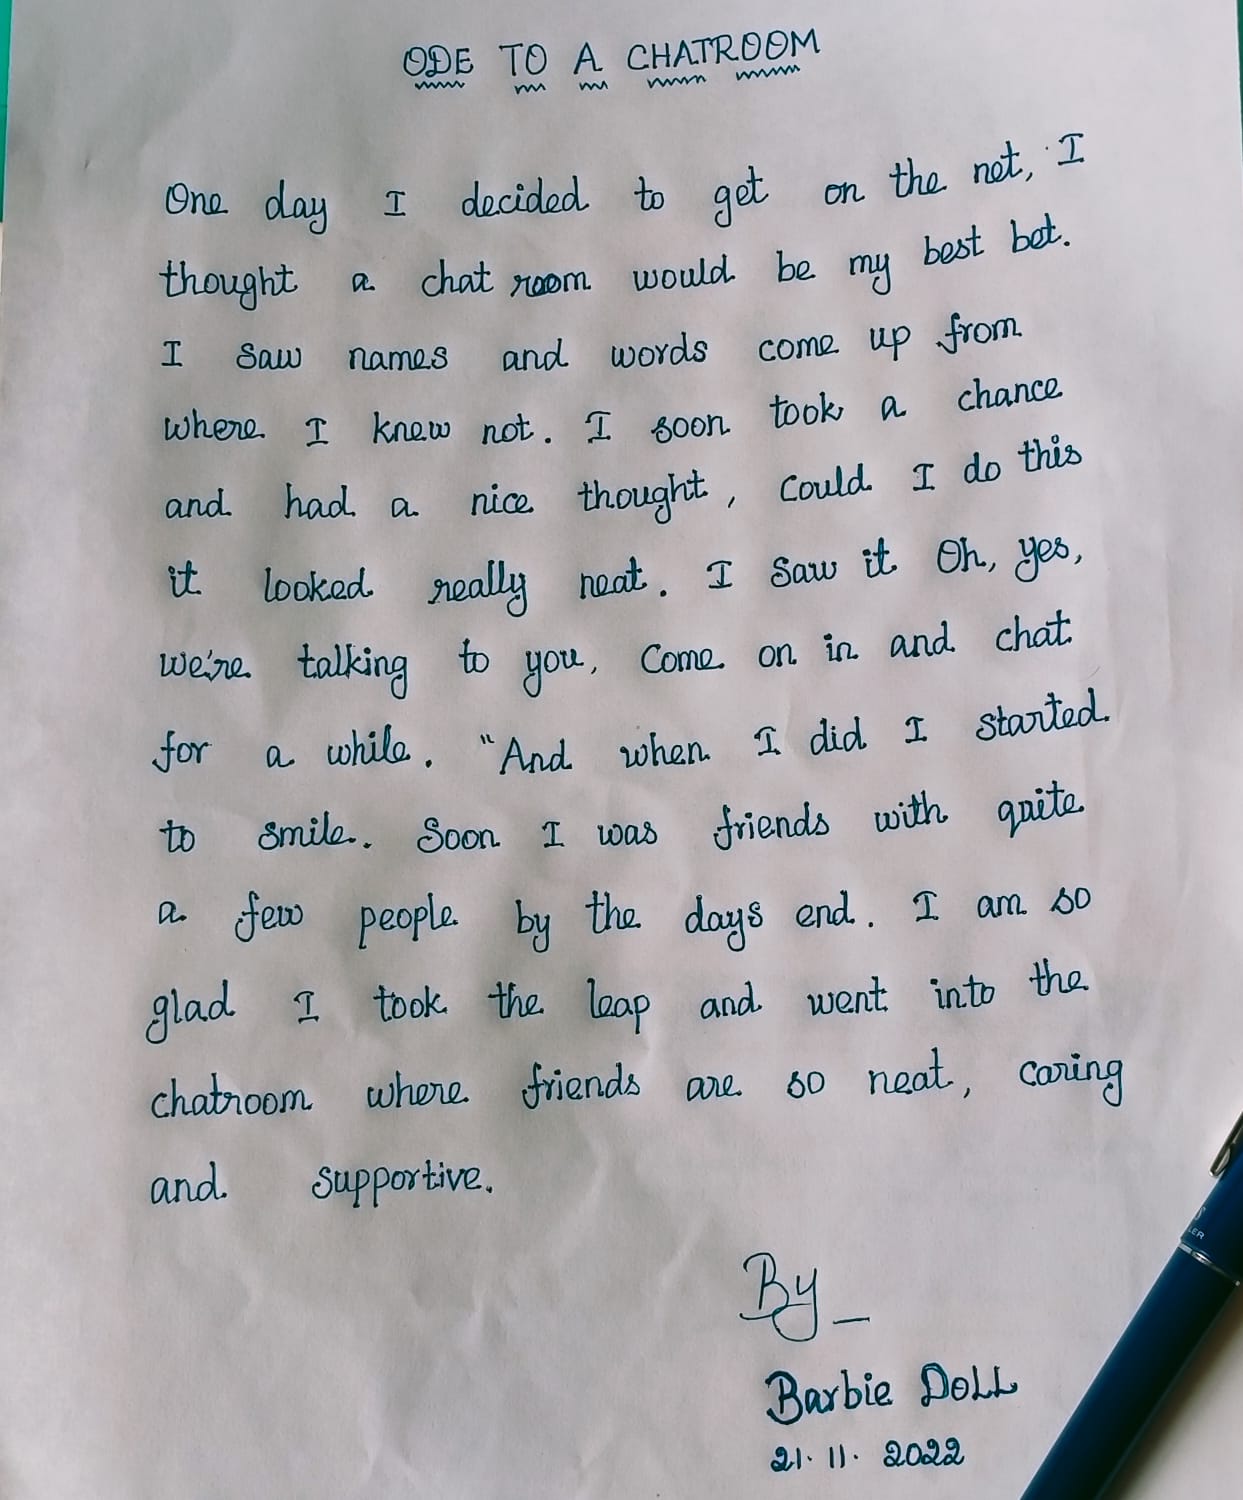 ODE TO A CHATROOM
One day I decided to get on the net, I
thought a chat room would be my best bet.
I saw names and words come up from
where I knew not. I soon took a chance
and had a nice thought, could I do this
it looked really neat. I saw it Oh, yes,
we're talking to you, Come on in and chat
for a while. "And when I did I started
to smile. Soon I was friends with quite
a few people by the days end. I am so
glad I took the leap and went into the
chatroom where friends are so neat, caring
and supportive.
By_
Barbie DoLL
21.11.2022
LER